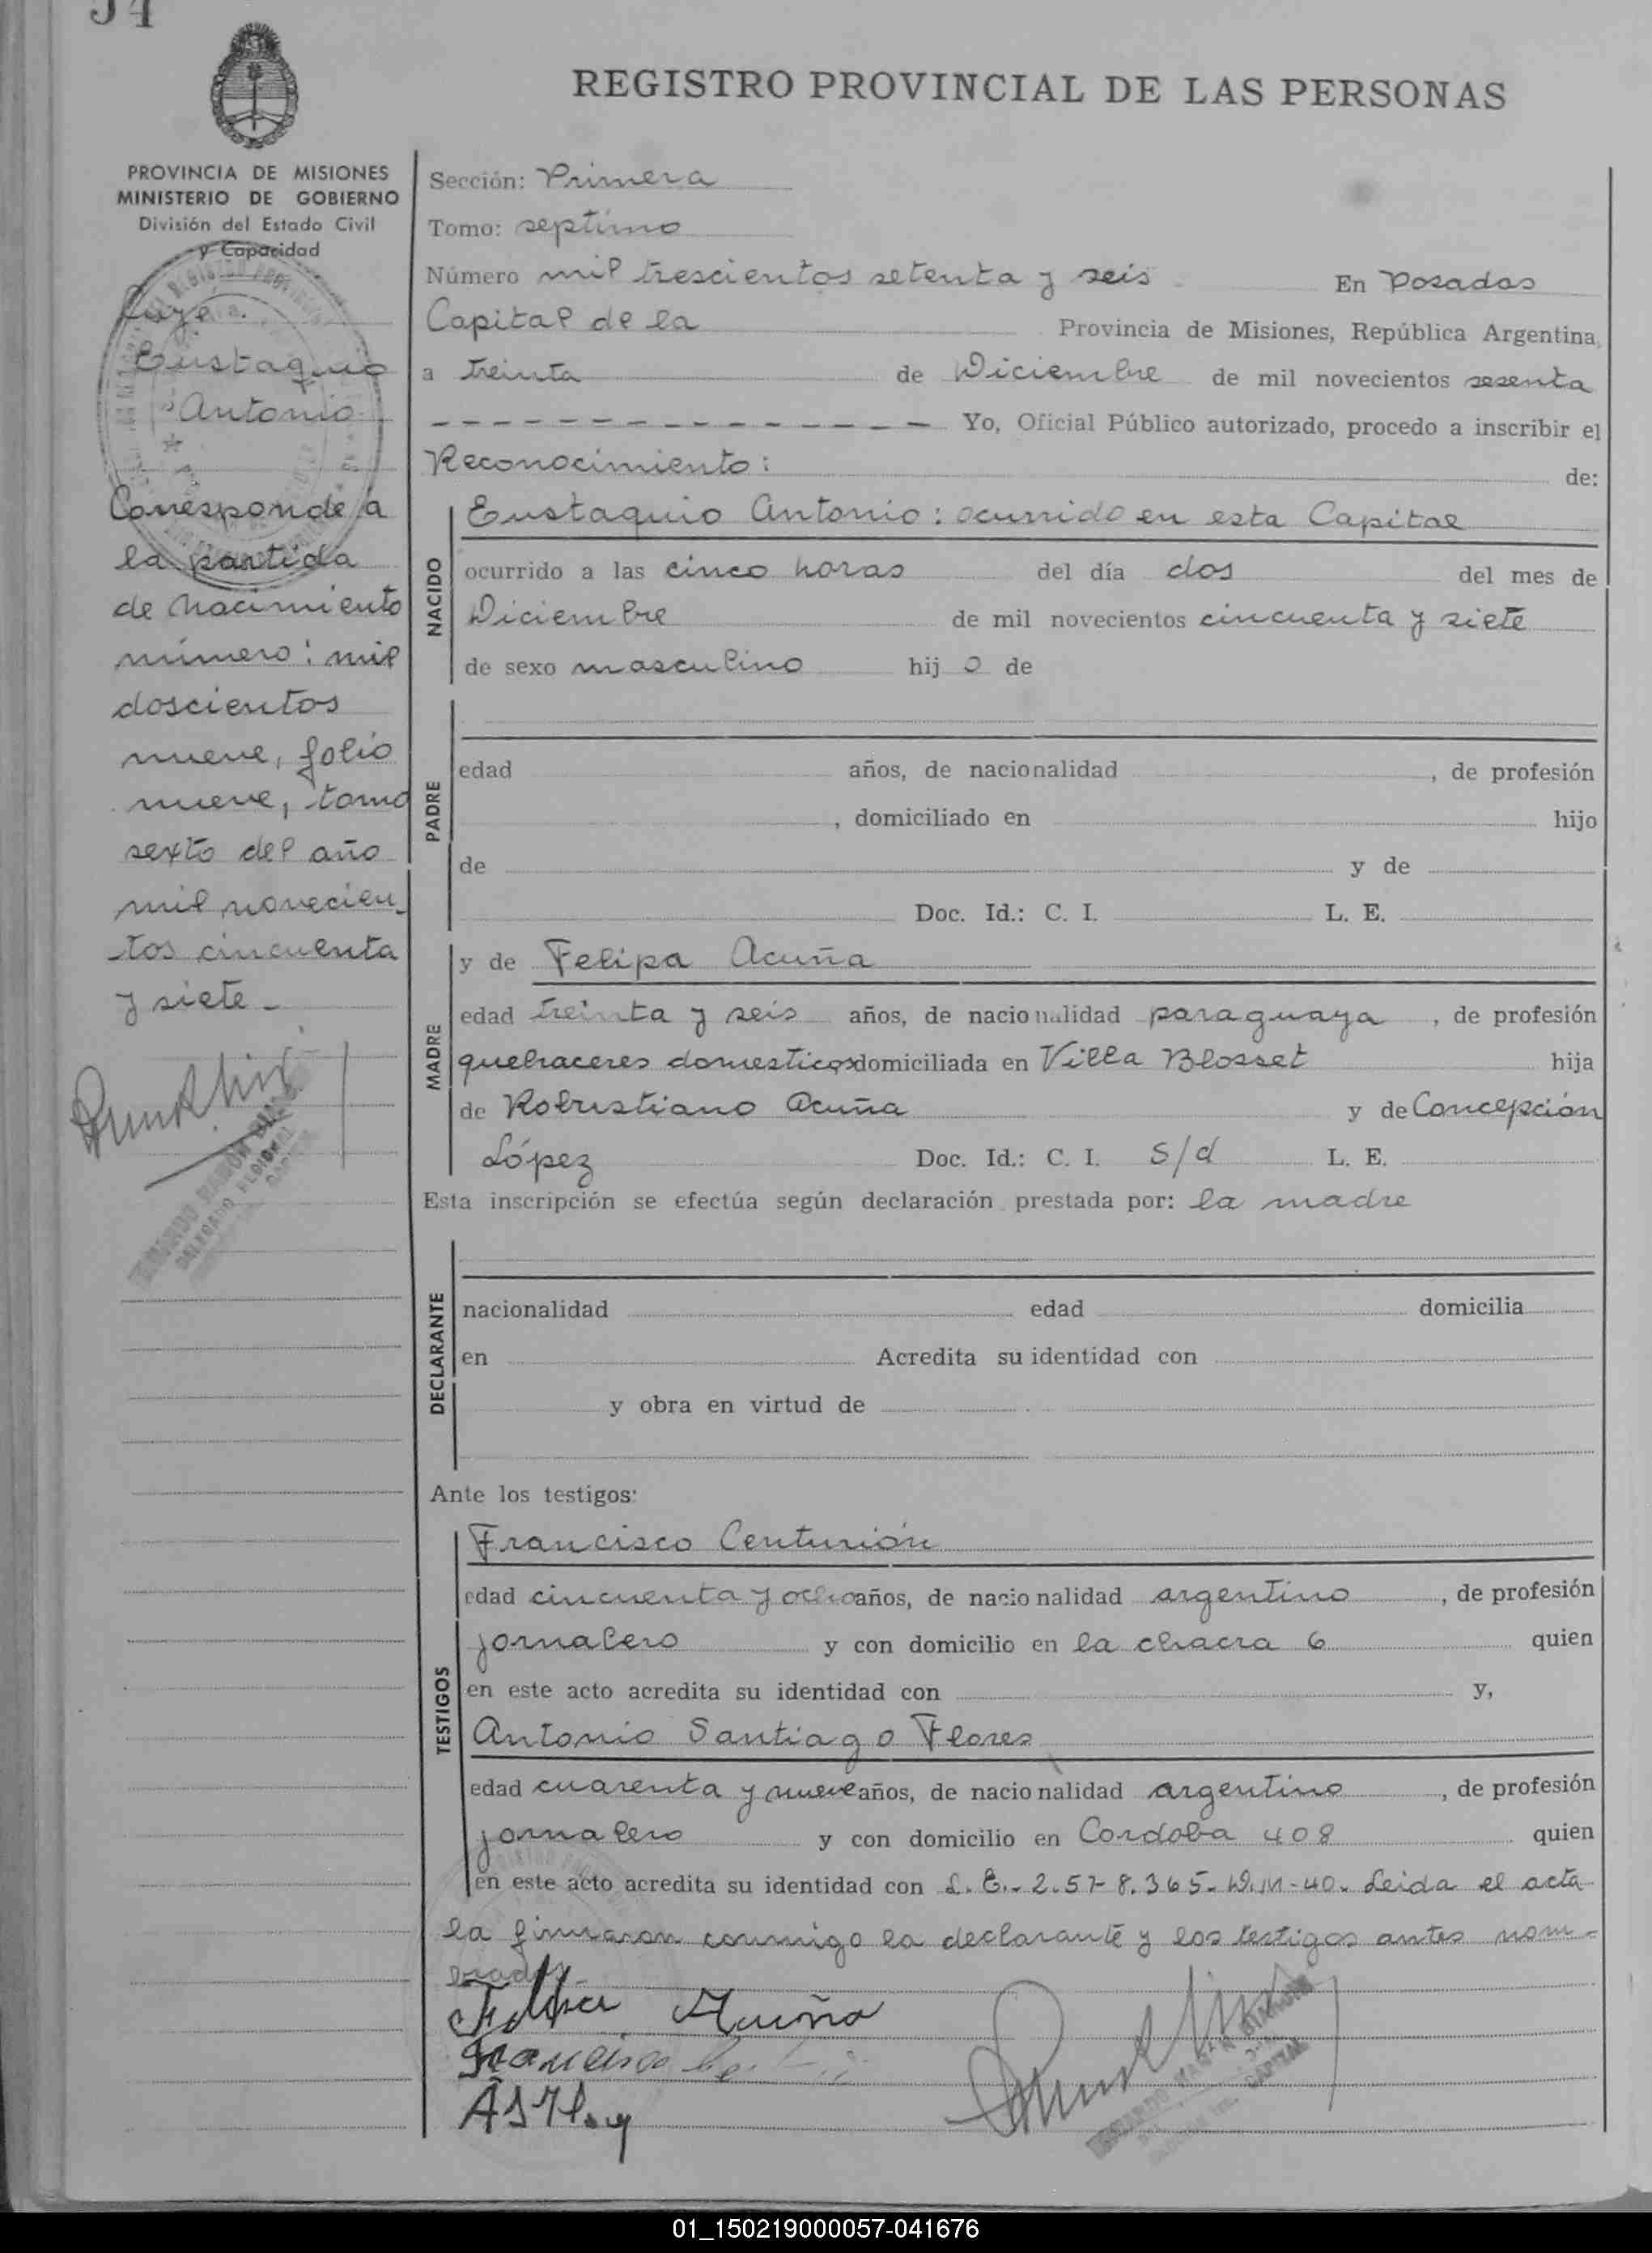 54
REGISTRO PROVINCIAL DE LAS PERSONAS
PROVINCIA DE MISIONES
MINISTERIO DE GOBIERNO
División del Estado Civil
y Capacidad
Eustaquio
Antonio
Corresponde a
la partida
de nacimiento
número: mil
doscientos
nueve, folio
nueve, tomo
sexto del año
mil novecien_
tos cincuenta
y siete_
Sección: Primera
Tomo: septimo
Número mil trescientos setenta y seis En Posadas
Capital de la Provincia de Misiones, República Argentina,
a treinta de Diciembre de mil novecientos sesenta
Yo, Oficial Público autorizado, procedo a inscribir el
Reconocimiento: de:
NACIDO
Eustaquio Antonio: ocurrido en esta Capital
ocurrido a las cinco horas del día dos del mes de
Diciembre de mil novecientos cincuenta y siete
de sexo masculino hij o de
PADRE
edad años, de nacionalidad , de profesión
, domiciliado en hijo
de y de
Doc. Id.: C. I. L. E.
MADRE
y de Felipa Acuña
edad treinta y seis años, de nacionalidad paraguaya , de profesión
quehaceres domesticos domiciliada en Villa Blosset hija
de Robustiano Acuña y de Concepción
López Doc. Id.: C. I. s/d L. E.
Esta inscripción se efectúa según declaración prestada por: la madre
DECLARANTE
nacionalidad edad domicilia
en Acredita su identidad con
y obra en virtud de
Ante los testigos:
TESTIGOS
Francisco Centurión
edad cincuenta y ocho años, de nacionalidad argentino , de profesión
jornalero y con domicilio en la chacra 6 quien
en este acto acredita su identidad con y,
Antonio Santiago Flores
edad cuarenta y nueve años, de nacionalidad argentino , de profesión
jornalero y con domicilio en Cordoba 408 quien
en este acto acredita su identidad con L.E.- 2.578.365. D.M-40. Leida el acta
la firmaron conmigo la declarante y los testigos antes nom-
brados_
Felipa Acuña
Francisco
01_150219000057-041676